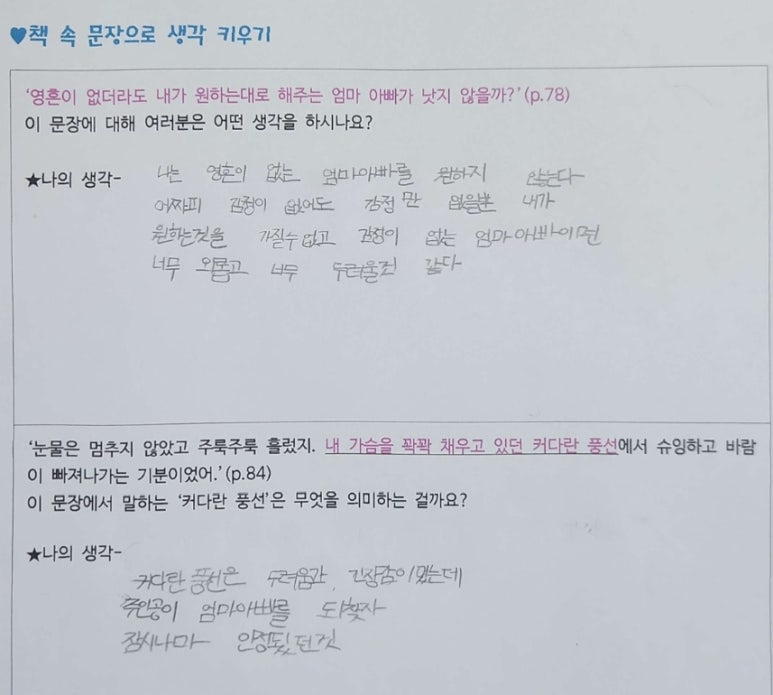 ♥책 속 문장으로 생각 키우기
'영혼이 없더라도 내가 원하는대로 해주는 엄마 아빠가 낫지 않을까?'(p.78)
이 문장에 대해 여러분은 어떤 생각을 하시나요?
★나의 생각- 나는 영혼이 없는 엄마아빠를 원하지 않는다
어짜피 감정이 없어도 감정만 없을뿐 내가
원하는것을 가질수 없고 감정이 없는 엄마아빠이면
너무 외롭고 너무 두려울것 같다
'눈물은 멈추지 않았고 주룩주룩 흘렀지. 내 가슴을 꽉꽉 채우고 있던 커다란 풍선에서 슈잉하고 바람
이 빠져나가는 기분이었어.'(p.84)
이 문장에서 말하는 '커다란 풍선'은 무엇을 의미하는 걸까요?
★나의 생각-
커다란 풍선은 두려움과 긴장감이었는데
주인공이 엄마아빠를 되찾자
잠시나마 안정됬던것